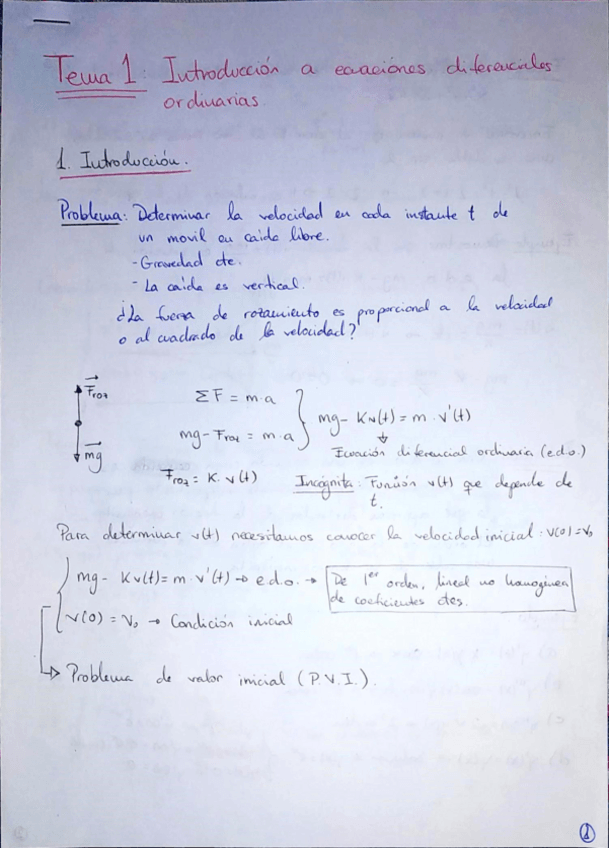 Tema 1: Introducción a ecuaciones diferenciales
ordinarias.
1. Introducción.
Problema: Determinar la velocidad en cada instante t de
un movil en caída libre.
- Gravedad cte.
- La caída es vertical.
¿La fuerza de rozamiento es proporcional a la velocidad
o al cuadrado de la velocidad?
F⃗roz
mg⃗
ΣF = m·a
mg - Froz = m·a
Froz = K. v(t)
mg - Kv(t) = m · v'(t)
Ecuación diferencial ordinaria (e.d.o.)
Incógnita: Función v(t) que depende de
t.
Para determinar v(t) necesitamos conocer la velocidad inicial: v(0)=v₀
mg - Kv(t) = m · v'(t) → e.d.o. → De 1er orden, lineal no homogénea
de coeficientes ctes.
v(0) = v₀ → Condición inicial
→ Problema de valor inicial (P.V.I.).
1